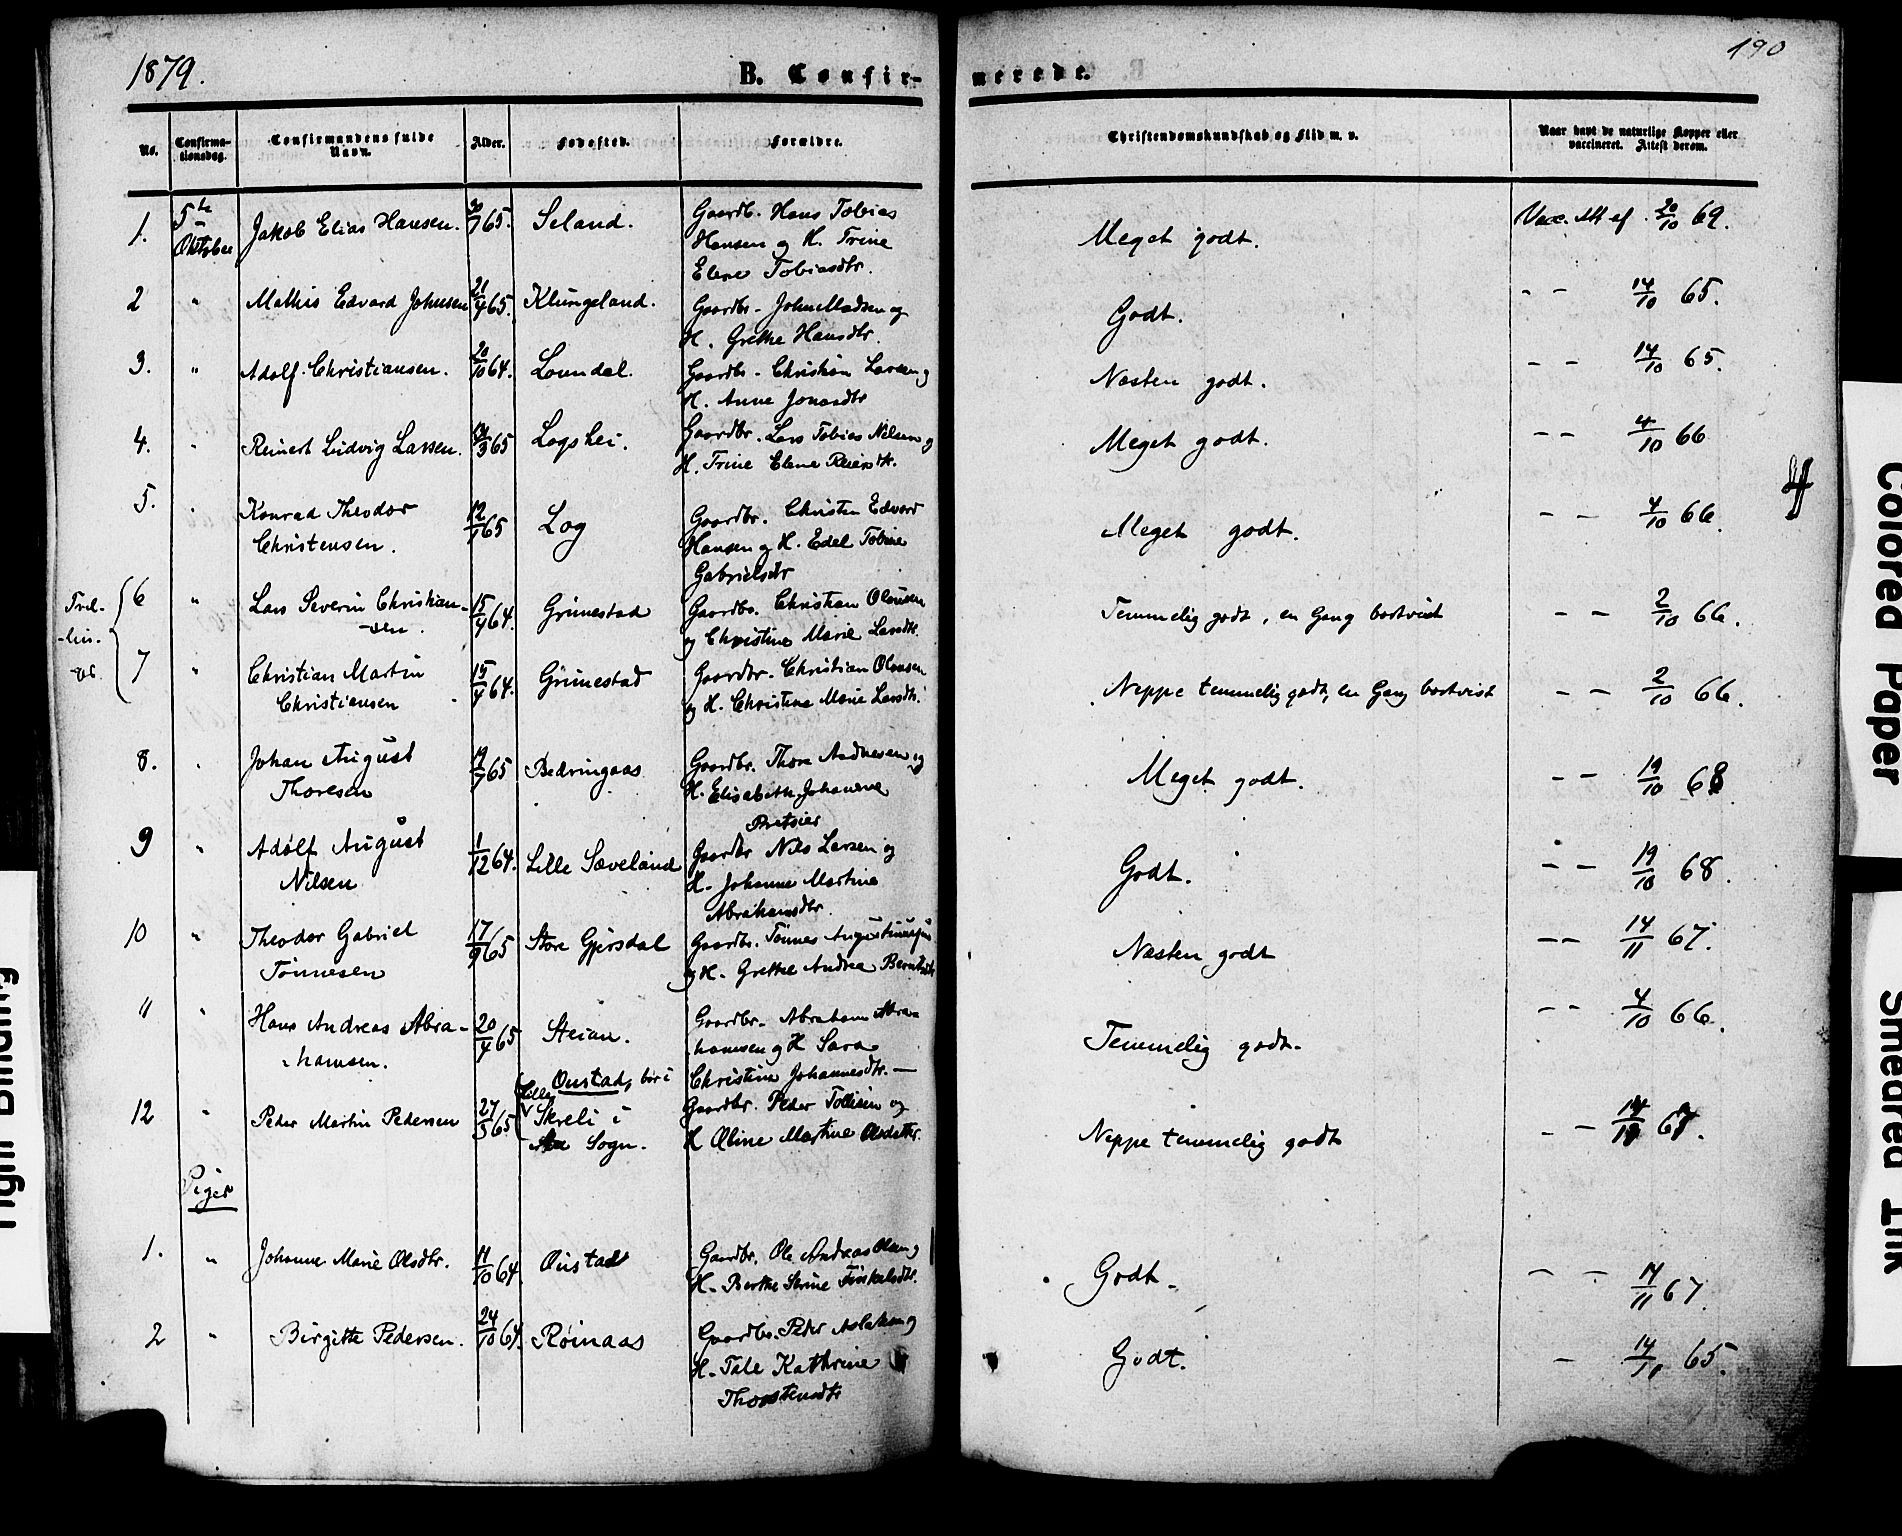 1879.
B. Confir-
merede.
190
No.
Confirma-
tionsdag.
Confirmandens fulde
Navn.
Alder.
Fødested.
Forældre.
Christendomskundskab og Flid m. v.
Naar havt de naturlige Kopper eller
vaccineret. Attest derom.
1. 5te Oktober Jakob Elias Hansen. 65. Seland. Gaardb. Hans Tobias
Hansen og H. Trine
Elene Tobiasdtr.
Meget godt. Vac. Att af 20/10 69.
2 " Mathis Edvard Johnsen 21/4 65. Klungeland. Gaardbr. John Madsen og
H. Grethe Hansdtr.
Godt. - - 14/10 65.
3. " Adolf Christiansen. 20/10 64. Lundal. Gaardbr. Christian Larsen og
H. Anne Jonasdtr
Næsten godt. - - 14/10 65.
4. " Reinert Ludvig Larsen. 65 Logshei. Gaardbr. Lars Tobias Nilsen og
H. Trine Elene Reiersdtr.
Meget godt. - - 4/10 66
5. " Konrad Theodor
Christensen. 12/1 65 Log Gaardbr. Christen Edvard
Hansen og H. Edel Tobine
Gabrielsdtr
Meget godt. - - 4/10 66.
Tvil-
-lin-
-ger
6 " Lars Severin Christian-
-sen. 15/4 64. Grimestad Gaardbr. Christian Olausen
og Christine Marie Larsdtr.
Temmelig godt, en Gang bortvist - - 2/10 66.
7 " Christian Martin
Christiansen 15/4 64. Grimestad Gaardbr. Christian Olausen
og H. Christine Marie Larsdtr.
Neppe temmelig godt, en Gang bortvist - - 2/10 66.
8. " Johan August
Thoresen 65 Bedringaas Gaardbr. Thore Andresen og
H. Elisabeth Johanne
Meget godt. - - 19/10 68
9 " Adolf August
Nilsen 1/12 64. Lille Sæveland Gaardbr Nils Larsen og
H. Johanne Martine
Abrahamsdtr.
Godt. - - 19/10 68.
10 " Theodor Gabriel
Tønnesen 17/9 65 Store Gjersdal Gaardbr. Tønnes Augustinussen
og H. Grethe Andrea Berntsdtr
Næsten godt - - 14/11 67.
11 " Hans Andreas Abra-
hamsen. 20/4 65 Steian. Gaardbr. Abraham Abra-
hamsen og H Sara
Christine Johannesdtr. -
Temmelig godt. - - 4/10 66.
12 " Peder Martin Pedersen 65 Oustad, bor i
Lille
Skreli i
Sogn. Gaardbr. Peder Tollisen og
H Oline Martine Olsdatter.
Neppe temmelig godt - - 67.
Piger
1. " Johanne Marie Olsdtr. 11/10 64. Oustad Gaardbr. Ole Andreas Olsen og
H. Berthe Serine Torkelsdtr.
Godt. - - 14/11 67.
2 " Birgitte Pedersen. 24/10 64. Røinaas Gaardbr. Peder Aslaksen og
H. Tale Kathrine
Thorstensdtr
Godt. - 14/10 65.
Colored Paper
Smeared Ink
Tight Binding